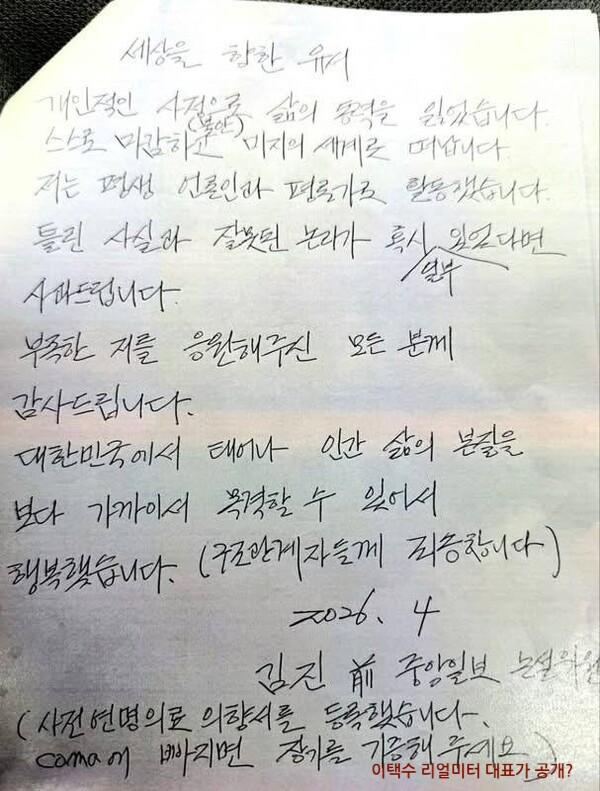 세상을 향한 유서
개인적인 사정으로 삶의 동력을 잃었습니다.
스스로 마감하고 (불안) 미지의 세계로 떠납니다.
저는 평생 언론인과 평론가로 활동했습니다.
틀린 사실과 잘못된 논리가 혹시 일부 있었다면
사과드립니다.
부족한 저를 응원해주신 모든 분께
감사드립니다.
대한민국에서 태어나 인간 삶의 본질을
보다 가까이서 목격할 수 있어서
행복했습니다. (구조관계자들께 죄송합니다)
2026. 4
김진 前 중앙일보 논설위원
(사전연명의료 의향서를 등록했습니다.
coma에 빠지면 장기를 기증해 주세요)
이택수 리얼미터 대표가 공개?